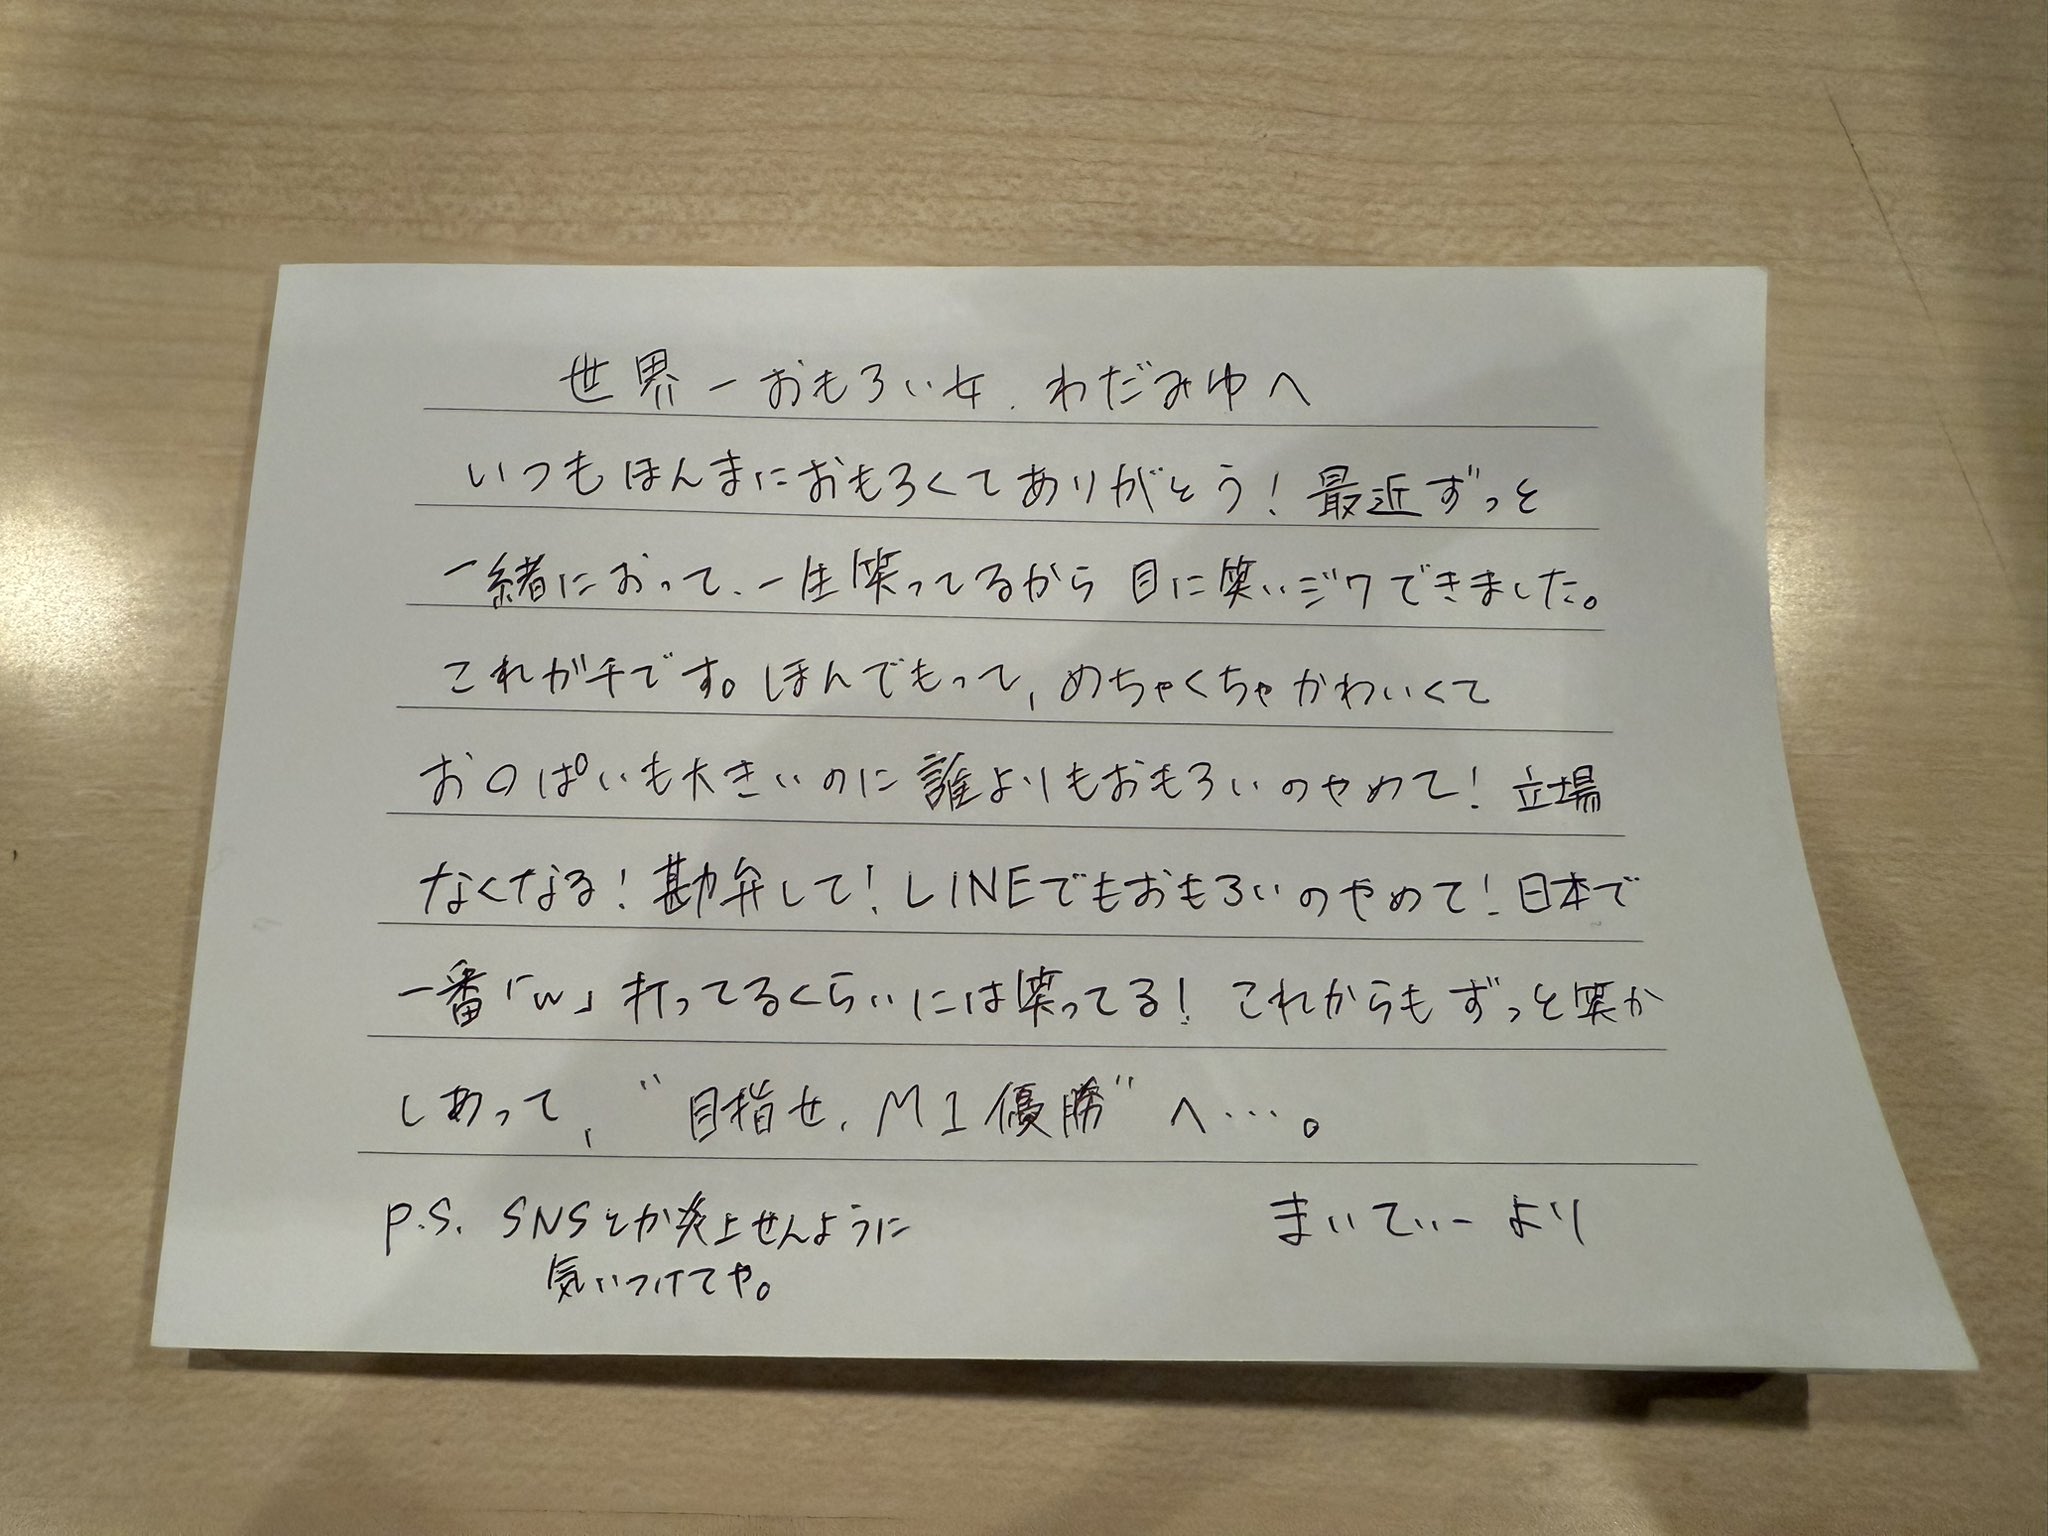 世界一おもろい女、わだみゆへ
いつもほんまにおもろくてありがとう！最近ずっと
一緒におって、一生笑ってるから目に笑いジワできました。
これガチです。ほんでもって、めちゃくちゃかわいくて
お〇ぱいも大きいのに誰よりもおもろいのやめて！立場
なくなる！勘弁して！LINEでもおもろいのやめて！日本で
一番「w」打ってるくらいには笑ってる！これからもずっと笑か
しあって、“目指せ、M1優勝”へ…。
まいてぃーより
P.S. SNSとか炎上せんように
気いつけてや。